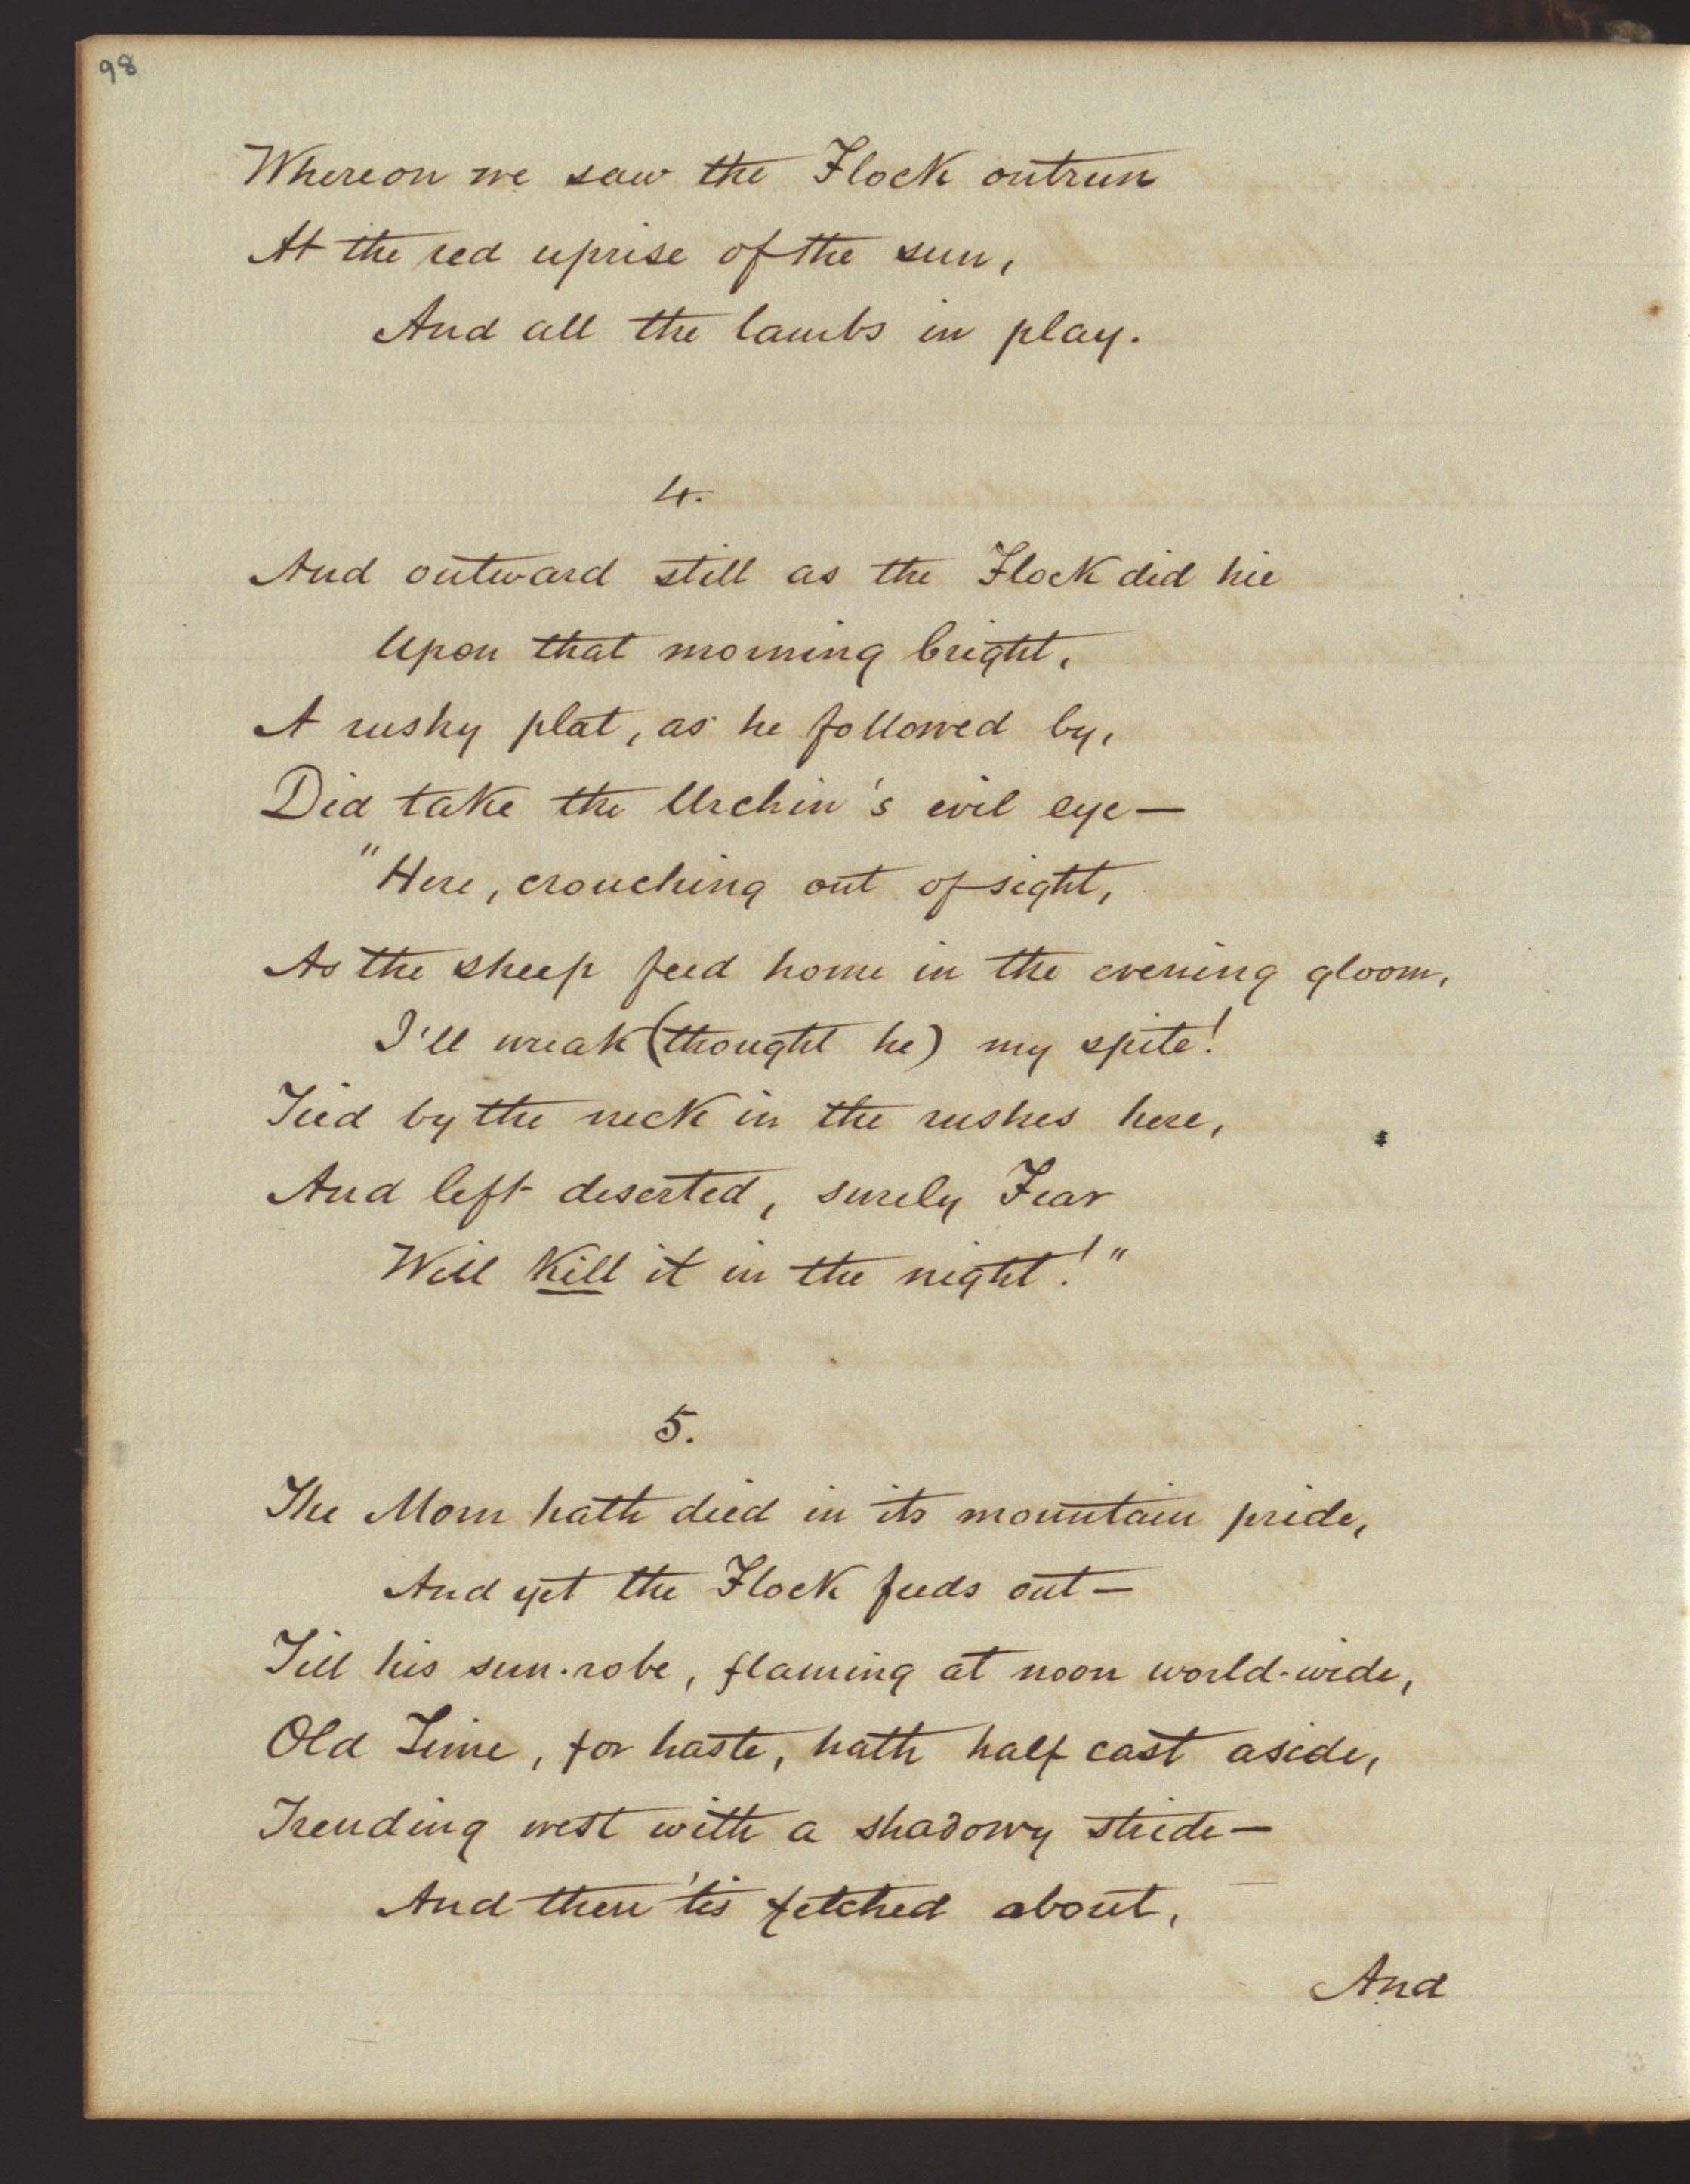 98
Whereon we saw the Flock outrun
At the red uprise of the sun,
And all the lambs in play.
4.
And outward still as the Flock did hie
Upon that morning bright,
A rushy plat, as he followed by,
Did take the Urchin's evil eye—
"Here, crouching out of sight,
As the sheep feed home in the evening gloom,
I'll wreak (thought he) my spite!
Tied by the neck in the rushes here,
And left deserted, surely Fear
Will kill it in the night!"
5.
The Morn hath died in its mountain pride,
And yet the Flock feeds out—
Till his sun-robe, flaming at noon world-wide,
Old Time, for haste, hath half cast aside,
Trending west with a shadowy stride—
And then 'tis fetched about,
And